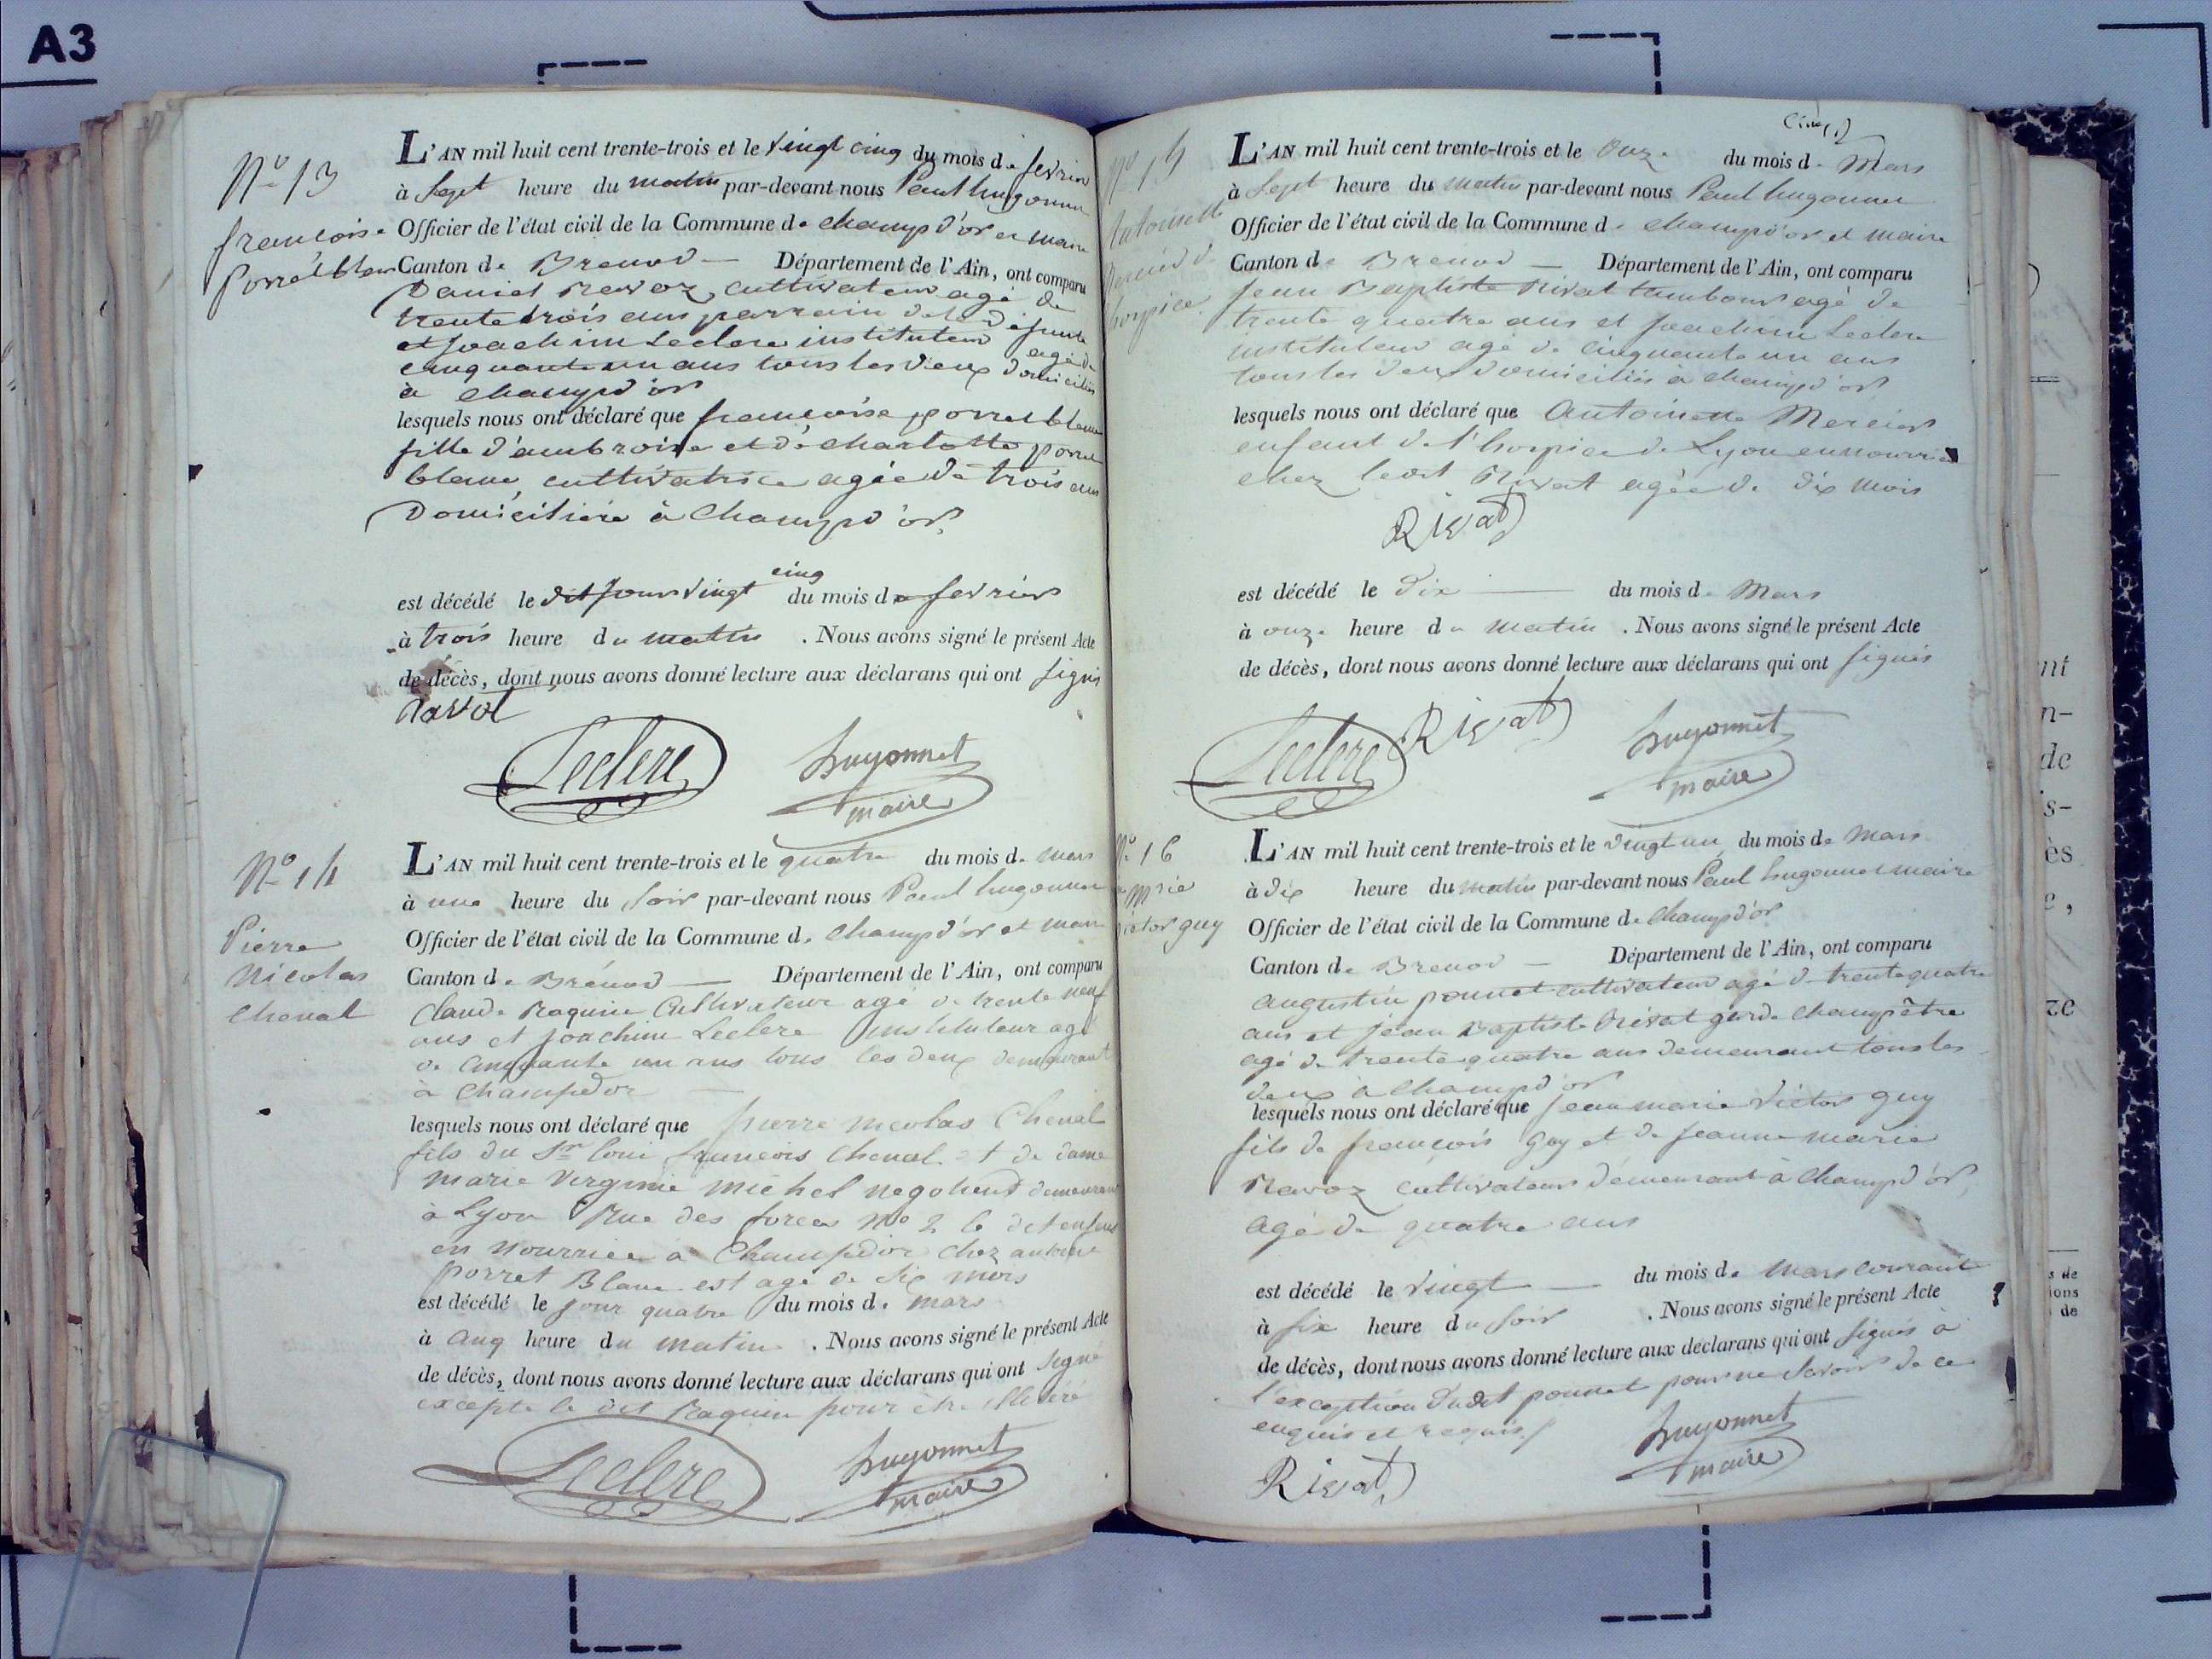 A3
N° 13
françoise
porret blanc
L'AN mil huit cent trente-trois et le vingt cinq du mois de fevrier
à Sept heure du matin par-devant nous Paul hugonnet
Officier de l'état civil de la Commune de Champd'or et maire
Canton de Brenod — Département de l'Ain, ont comparu
Daniel Ravoz, cultivateur agé de
trente trois ans parrain de la défunte
et Joachim Leclere instituteur agé de
cinquante un ans tous les deux domiciliés
à Champd'or
lesquels nous ont déclaré que françoise porret blanc
fille d'ambroise et de charlotte porret
blanc, cultivatrice agée de trois ans
Domiciliée à Champd'or,
est décédé le dit jour vingt cinq du mois de fevrier
à trois heure du matin . Nous avons signé le présent Acte
de décès, dont nous avons donné lecture aux déclarans qui ont signés
Leclere
hugonnet
maire
N° 14
Pierre
Nicolas
Chenal
L'AN mil huit cent trente-trois et le quatre du mois de mars
à une heure du soir par-devant nous Paul hugonnet
Officier de l'état civil de la Commune de Champd'or et maire
Canton de Brénod — Département de l'Ain, ont comparu
Claude Raquin Cultivateur agé de trente neuf
ans et Joachim Leclere instituteur agé
de cinquante un ans tous les deux demeurant
à Champdor
lesquels nous ont déclaré que pierre Nicolas Chenal
fils du Sr loui françois Chenal et de dame
marie Verginie michel negotient demeurant
a Lyon Rue des forces N° 2 le dit enfant
en Nourrice a Champdor chez antoine
porret Blanc est agé de dix mois
est décédé le jour quatre du mois de mars
à cinq heure du matin . Nous avons signé le présent Acte
de décès, dont nous avons donné lecture aux déclarans qui ont signé
excepte le dit Raquin pour être illiteré
Leclere
hugonnet
maire
N° 15
Antoinette
hospice
L'AN mil huit cent trente-trois et le onze du mois de Mars
à Sept heure du matin par-devant nous Paul hugonnet
Officier de l'état civil de la Commune de Champd'or et maire
Canton de Brenod — Département de l'Ain, ont comparu
Jean Baptiste Rivat tambour agé de
trente quatre ans et Joachim Leclere
instituteur agé de cinquante un ans
tous les deux domiciliés à Champd'or
lesquels nous ont déclaré que Antoinette Mercier
enfant de l'hospice de Lyon en nourrice
chez ledit Rivat agée de dix mois
Rivat
est décédé le dix — du mois de Mars
à onze heure du matin . Nous avons signé le présent Acte
de décès, dont nous avons donné lecture aux déclarans qui ont signés
Leclere Rivat
hugonnet
maire
N° 16
victor guy
L'AN mil huit cent trente-trois et le vingt un du mois de Mars
à dix heure du matin par-devant nous Paul hugonnet maire
Officier de l'état civil de la Commune de Champd'or
Canton de Brenod — Département de l'Ain, ont comparu
augustin pounet cultivateur agé de trente quatre
ans et Jean Baptiste Rivat garde champêtre
agé de trente quatre ans demeurant tous les
deux à Champd'or
lesquels nous ont déclaré que Jean marie Victor guy
fils de françois guy et de Jeanne marie
Ravoz cultivateurs demeurant à Champd'or,
agé de quatre ans
est décédé le vingt — du mois de mars courant
à six heure du soir . Nous avons signé le présent Acte
de décès, dont nous avons donné lecture aux déclarans qui ont signés à
l'exception dudit pounet pour ne savoir de ce
enquis et requis
Rivat
hugonnet
maire